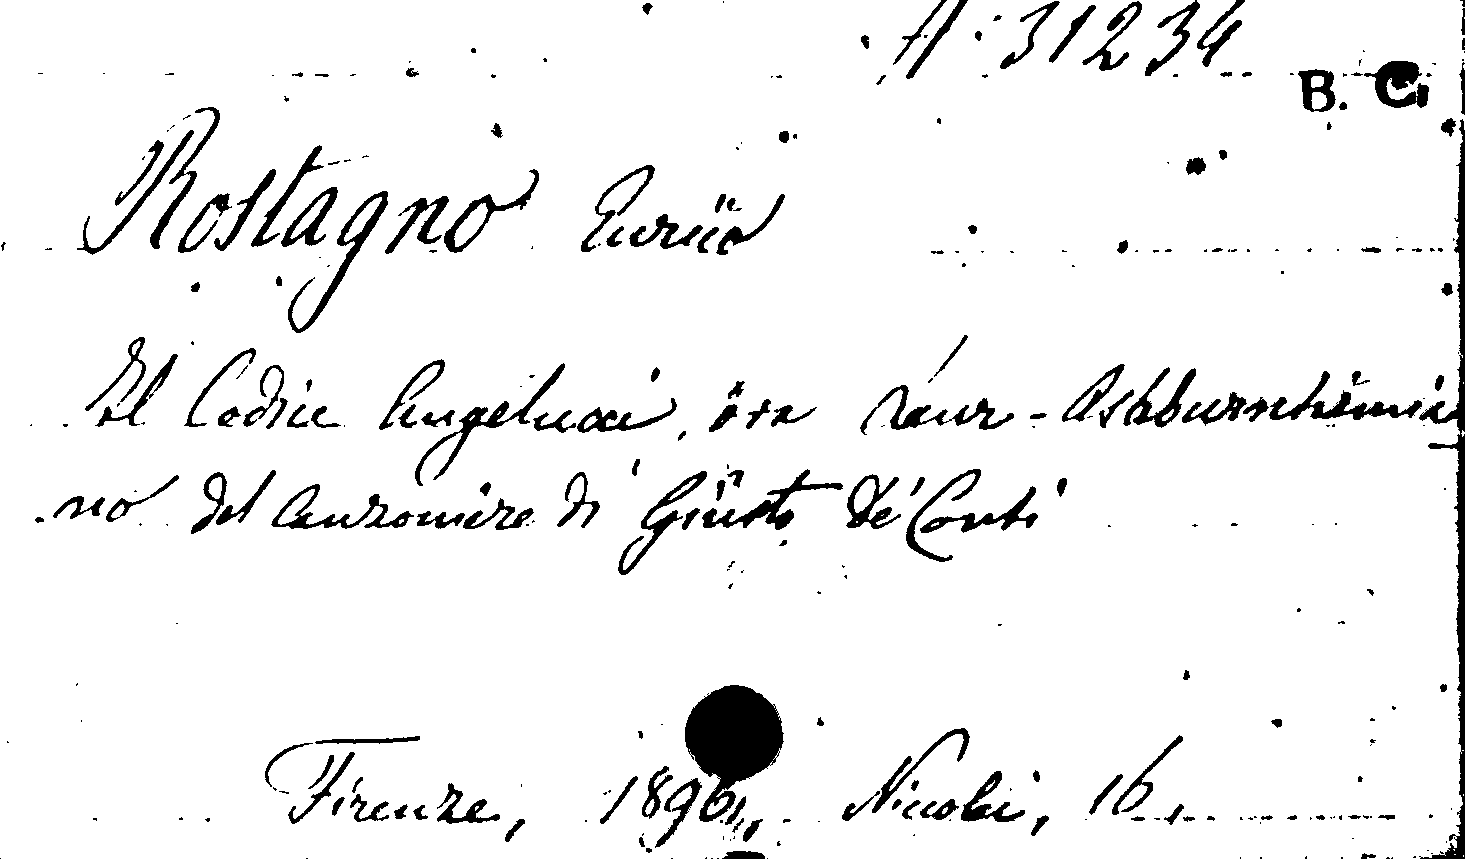 A. 31234
B. C.
Rostagno Enrico
Il Codice Angelucci, ora Laur-Ashburnhamia
no del Canzoniere di Giusto de' Conti
Firenze, 1896, Niccolai, 16.